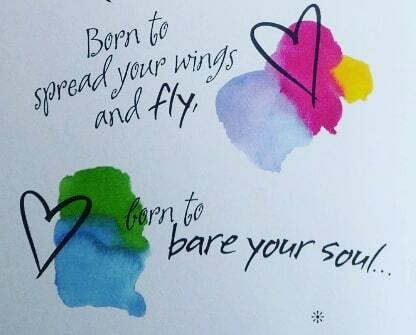 Born to
spread your wings
and fly,
born to
bare your soul...